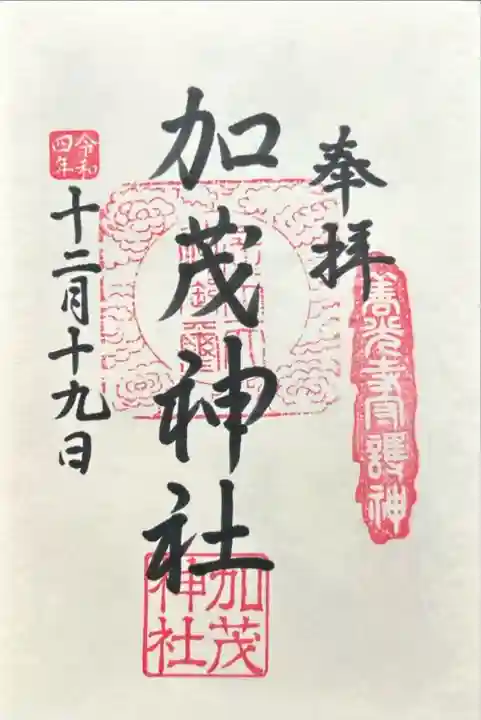 奉拝
善光寺守護神
加茂神社
加茂
神社
令和
四年
十二月十九日